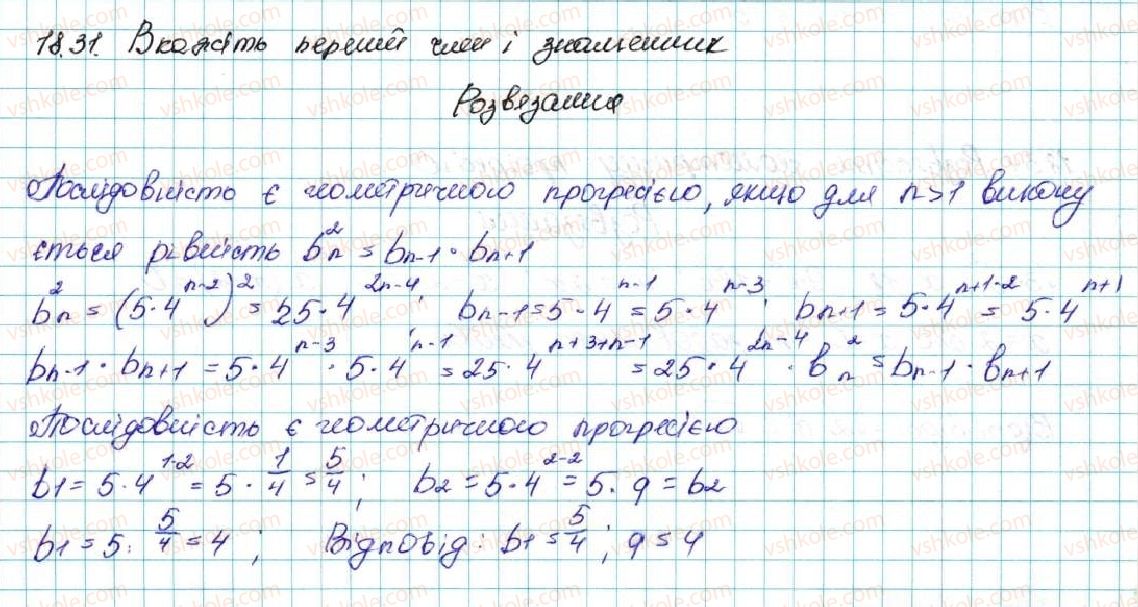 18.31. Вкажіть перший член і знаменник
Розвязання
Послідовність є геометричного прогресією, якщо для n>1 викону
ється рівність bₙ² = bₙ₋₁ · bₙ₊₁
bₙ² = (5·4ⁿ⁻²)² = 25·4²ⁿ⁻⁴; bₙ₋₁ = 5·4ⁿ⁻¹ = 5·4ⁿ⁻³; bₙ₊₁ = 5·4ⁿ⁺¹·² = 5·4ⁿ⁺¹
bₙ₋₁ · bₙ₊₁ = 5·4ⁿ⁻³ · 5·4ⁿ⁻¹ = 25·4ⁿ⁺³⁺ⁿ⁻¹ = 25·4²ⁿ⁻⁴ · bₙ² = bₙ₋₁ · bₙ₊₁
Послідовність є геометричного прогресією
b1 = 5·4¹⁻² = 5·1/4 = 5/4; b2 = 5·4²⁻² = 5. q = b2
b1 = 5 : 5/4 = 4; Відповід: b1 = 5/4; q = 4